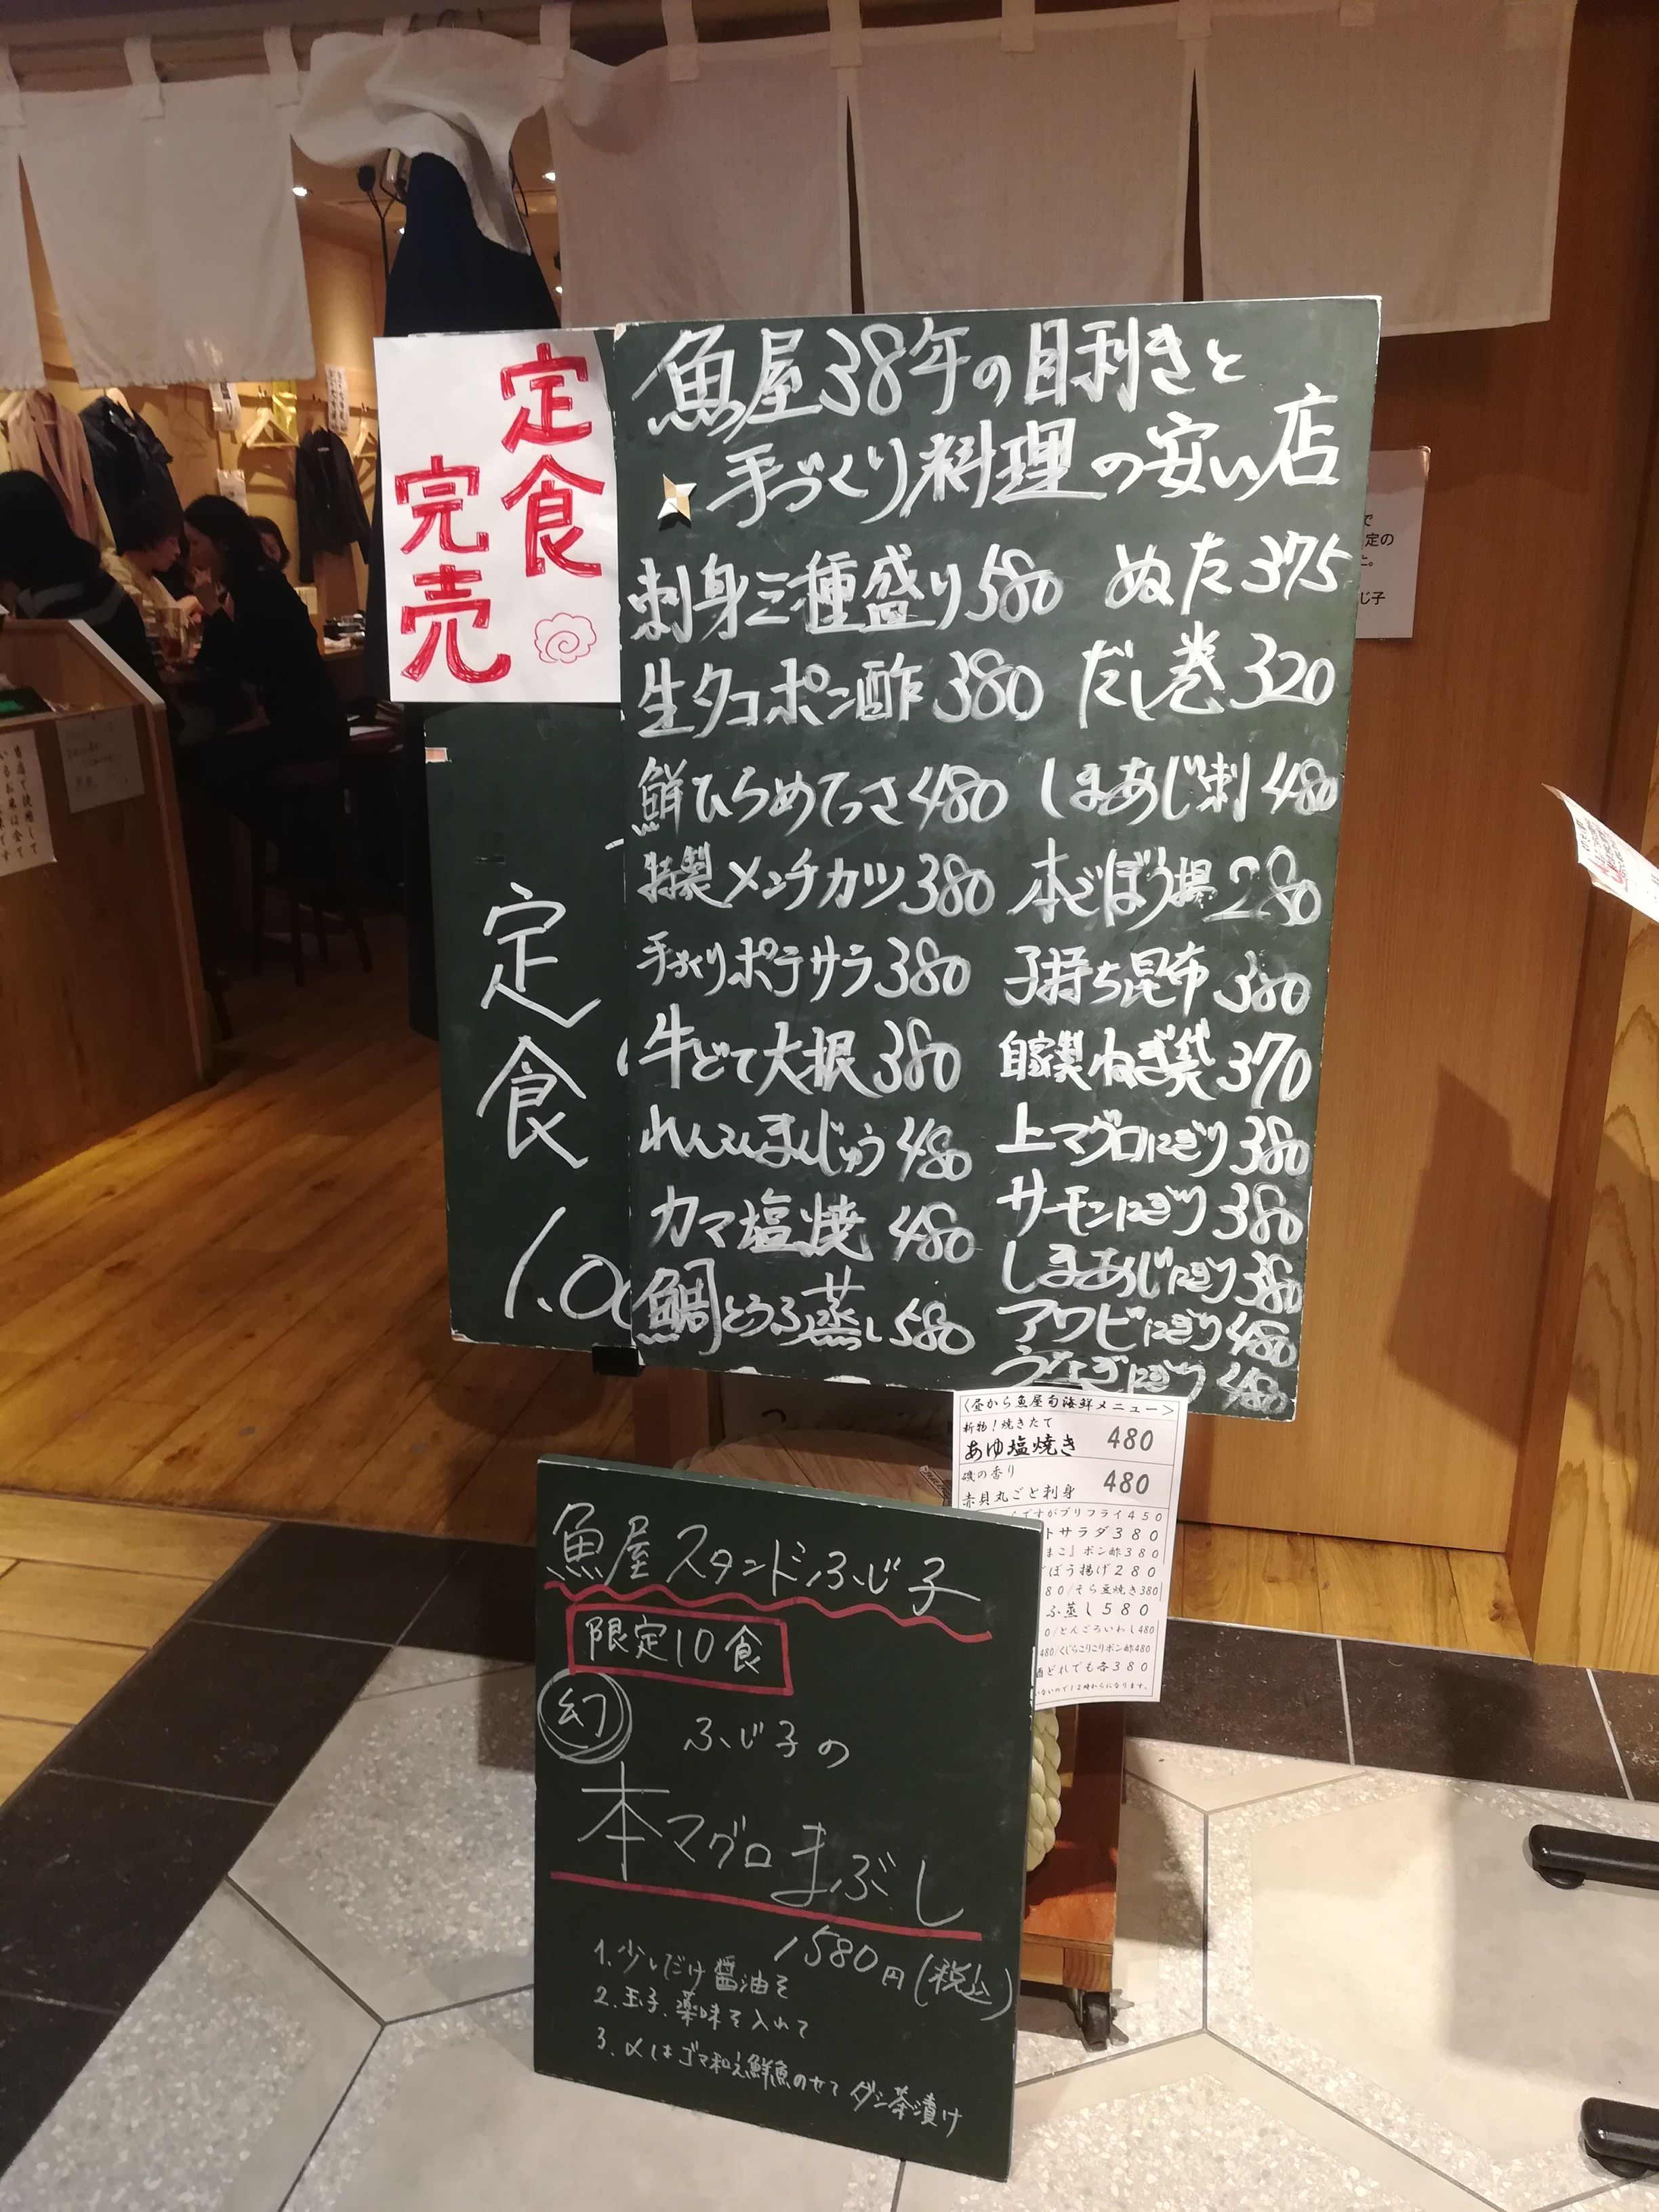 定食
完売
魚屋38年の目利きと
手づくり料理の安い店
刺身三種盛り580
生タコポン酢380
鮮ひらめてっさ480
特製メンチカツ380
手づくりポテサラ380
牛どて大根380
れんこんまんじゅう480
カマ塩焼480
鯛とうふ蒸し580
ぬた375
だし巻320
しまあじ刺480
本ごぼう揚280
子持ち昆布380
自家製ねぎ袋370
上マグロにぎり380
サーモンにぎり380
しまあじにぎり380
アワビにぎり480
うなぎにぎり480
定食
1.0
<昼から魚屋旬海鮮メニュー>
新物!焼きたて
あゆ塩焼き 480
磯の香り
赤貝丸ごと刺身 480
ですがブリフライ450
トサラダ380
まこ』ポン酢380
ぼう揚げ280
80/そら豆焼き380
ふ蒸し580
0/とんごろいわし480
480/くじらこりこりポン酢480
酒どれでも各380
いないので12時からになります。
魚屋スタンドふじ子
限定10食
幻
ふじ子の
本マグロまぶし
1580円(税込)
1.少しだけ醤油を
2.玉子、薬味を入れて
3.〆はゴマ和え鮮魚のせてダシ茶漬け
で
定の
じ子